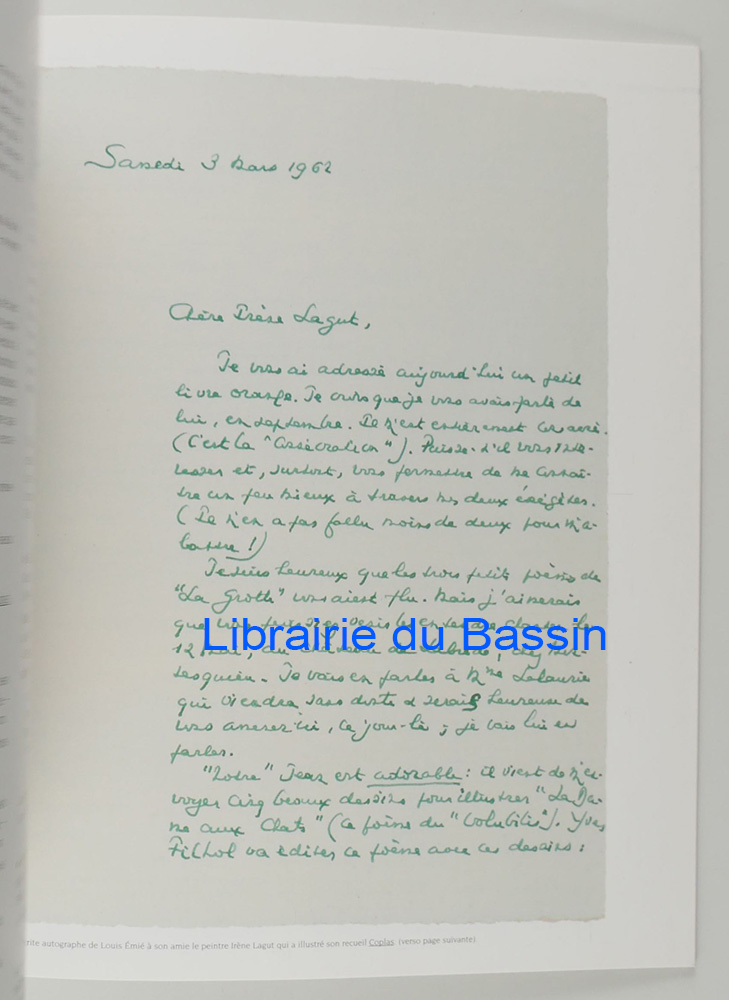 Samedi 3 Mars 1962
Chère Irène Lagut,
Je vous ai adressé aujourd'hui un petit
livre orange. Je crois que je vous avais parlé de
lui, en septembre. Il m'est entièrement consacré.
(C'est la "Consécration"). Puisse-t-il vous inté-
resser et, surtout, vous permettre de me connaî-
tre un peu mieux à travers mes deux exégètes.
(Il n'en a pas fallu moins de deux pour m'a-
battre !)
Je suis heureux que les trois petits poèmes de
"La Grotte" vous aient plu. Mais j'aimerais
que vous
Librairie du Bassin
12 Mai, au château de Labrède, chez Mon-
tesquieu. Je vais en parler à Mme Lalaurie
qui viendra sans doute & serait heureuse de
vous amener ici, ce jour-là ; je vais lui en
parler.
"Notre" Jean est adorable : il vient de m'en-
voyer cinq beaux dessins pour illustrer "La Da-
me aux Chats" (ce poème du "Volubilis"). Yves
Filhol va éditer ce poème avec ces dessins :
rite autographe de Louis Émié à son amie le peintre Irène Lagut qui a illustré son recueil Coplas. (verso page suivante)